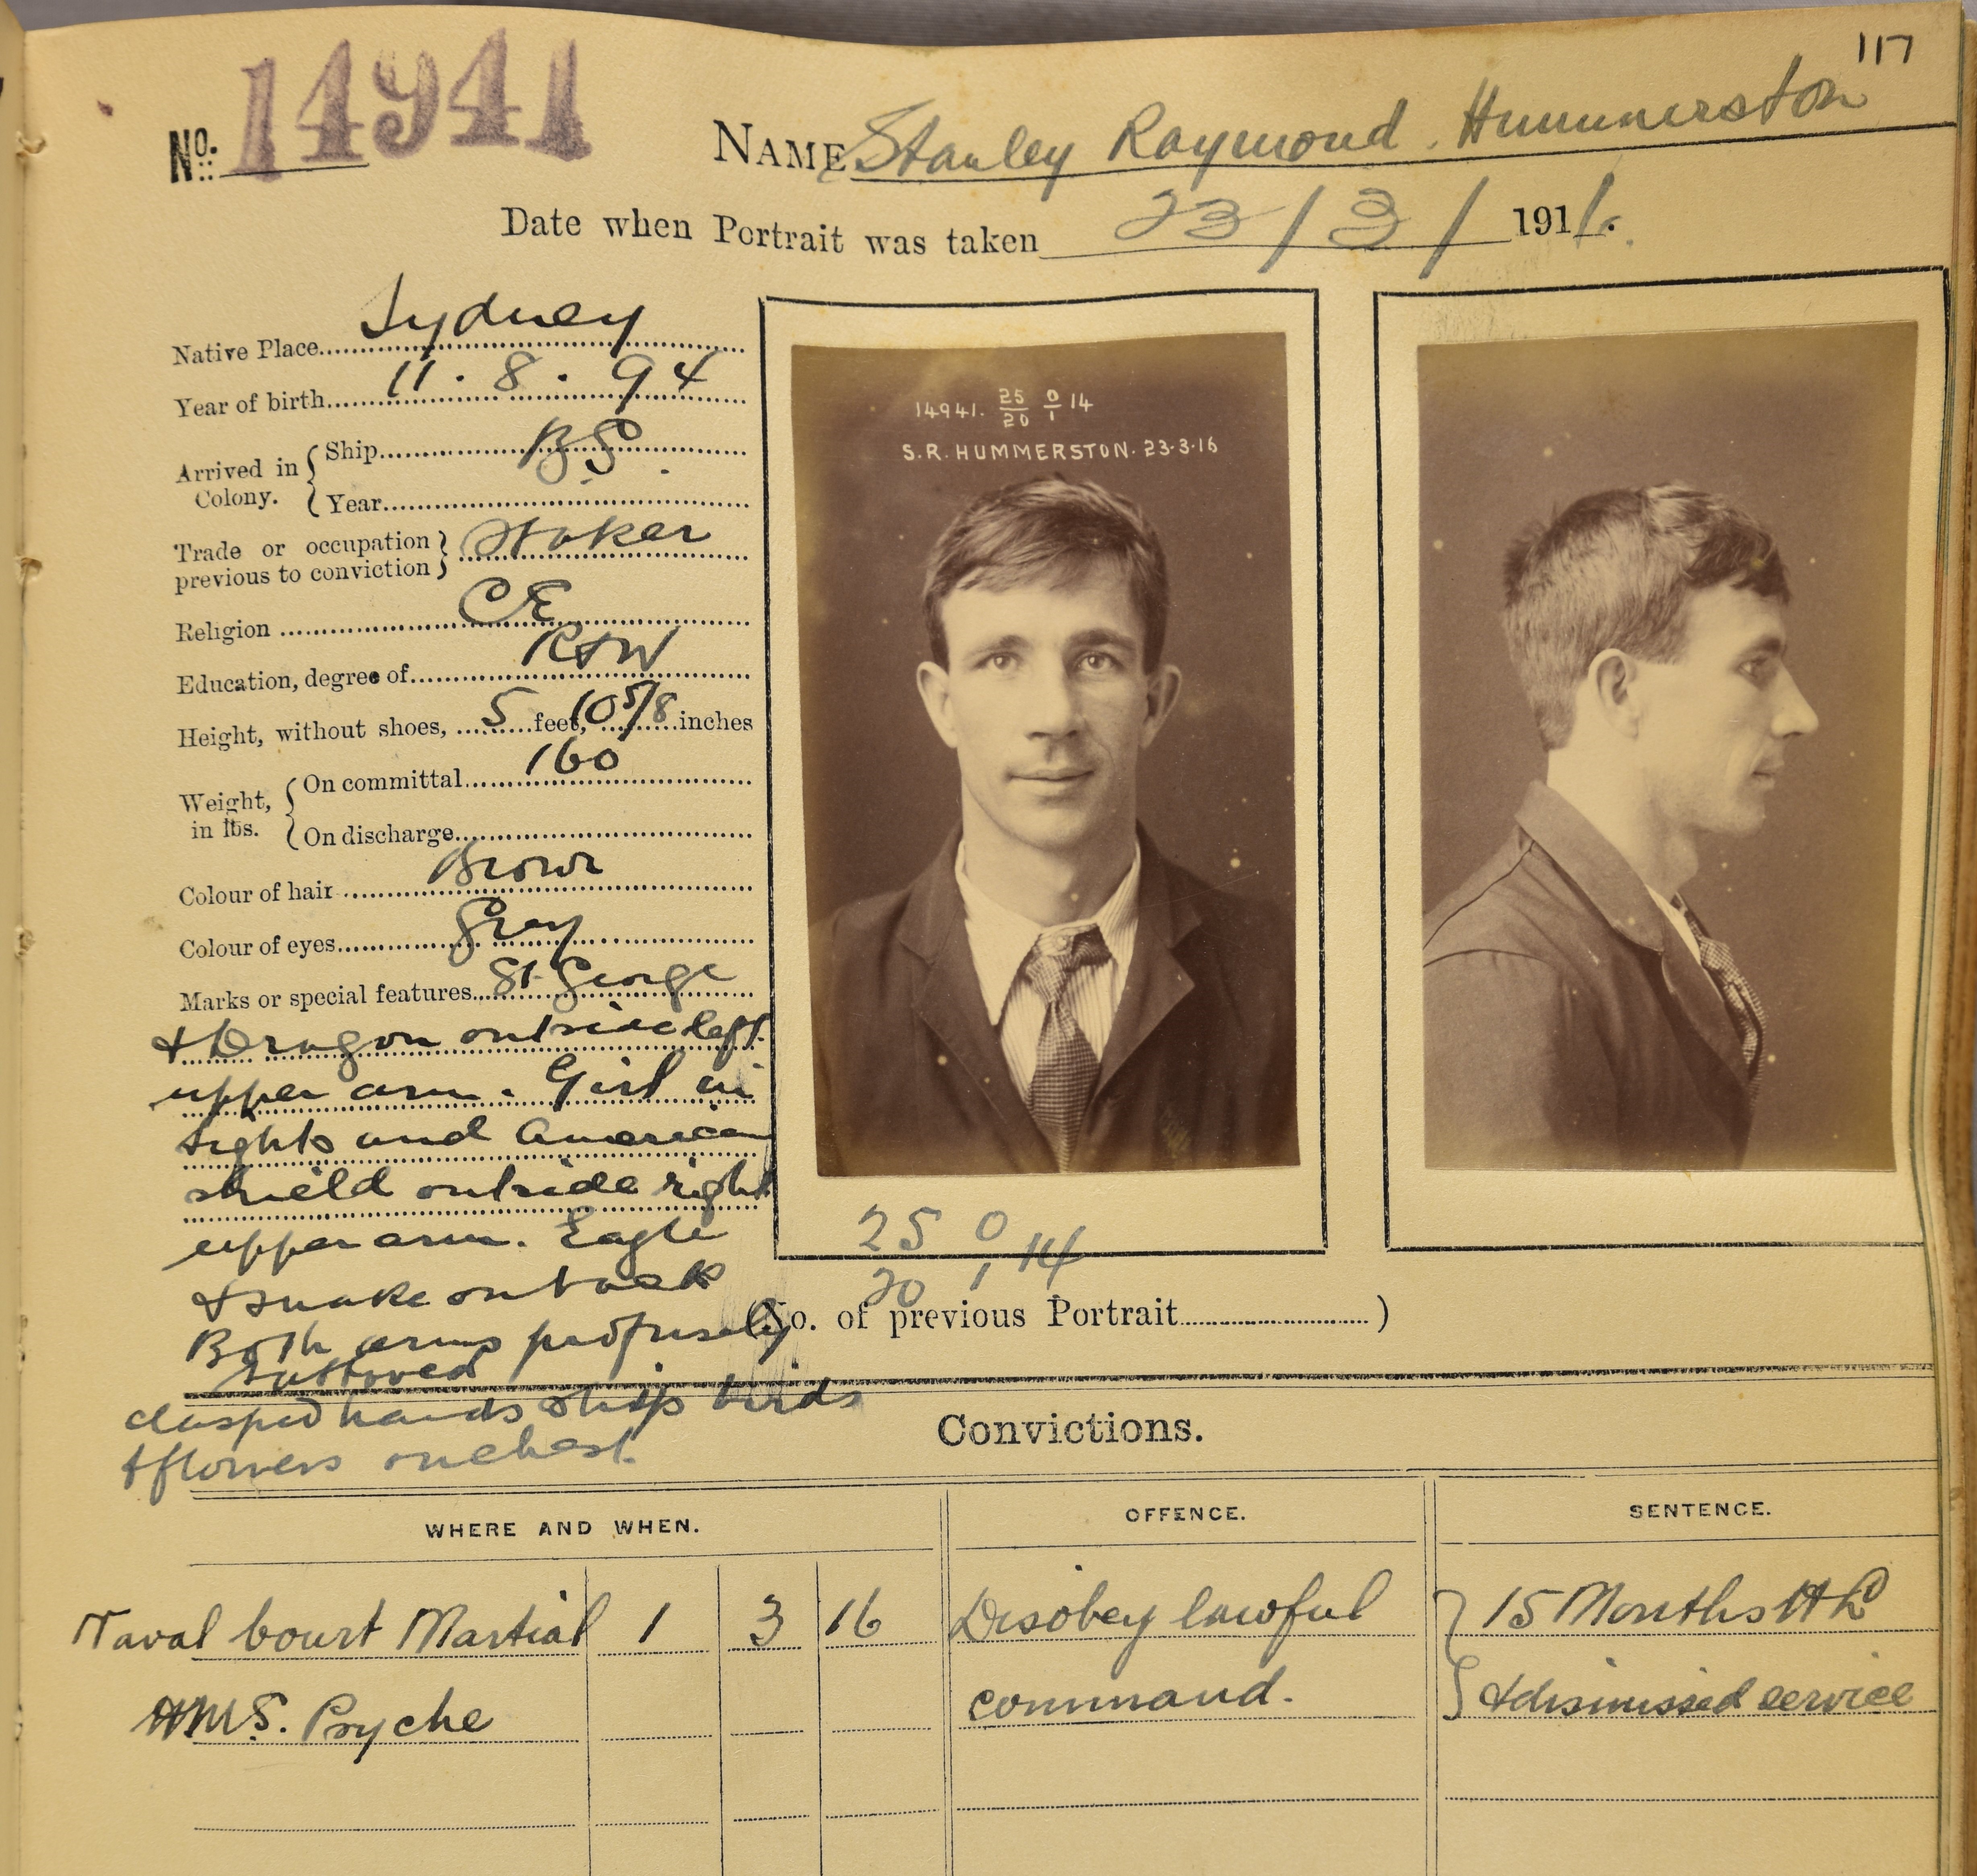 117
No. 14941
NAME Stanley Raymond. Hummerston
Date when Portrait was taken 23/3/1916.
Native Place Sydney
Year of birth 11.8.94
Arrived in Colony. { Ship BS
Year
Trade or occupation previous to conviction } Stoker
Religion CE
Education, degree of R&W
Height, without shoes, 5 feet, 10 5/8 inches
Weight, in lbs. { On committal 160
On discharge
Colour of hair Brown
Colour of eyes Grey
Marks or special features St George
& Dragon outside left
upper arm. Girl in
tights and American
shield outside right
upper arm. Eagle
& snake on back
Both arms profusely
tattooed
clasped hands ship birds
& flowers on chest.
14941. 25/20 0/1 14
S.R. HUMMERSTON. 23·3·16
25 0
20 1 14
(No. of previous Portrait )
Convictions.
WHERE AND WHEN. OFFENCE. SENTENCE.
Naval Court Martial 1 3 16 Disobey lawful } 15 Months HL
HMS. Psyche command. } & dismissed service